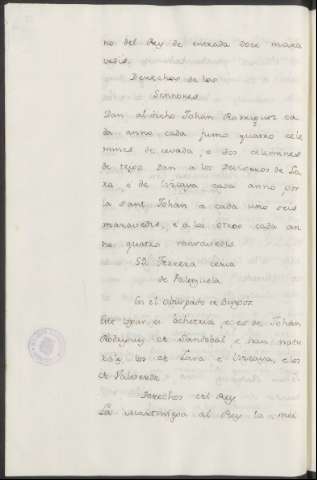 no del Rey de entrada doce mara
vedis.
Derechos de los
Sennores
Dan al dicho Johan Rodriguez ca
da anno cada fumo quatro cele
mines de cevada, e dos celemines
de trigo. Dan a los Sennores de La
ra, e de Vizcaya, cada anno por
la Sant Johan a cada uno seis
maravedis, e a los otros cada an
no quatro maravedis
52 Ferrera cerca
de Palenzuela
En el Obispado de Burgos
Este logar es behetria, e es de Johan
Rodriguez de Sandoval e han natu
raleza los de Lara e Vizcaya, e los
de Villalobos
Derechos del Rey
La martiniega al Rey la mei